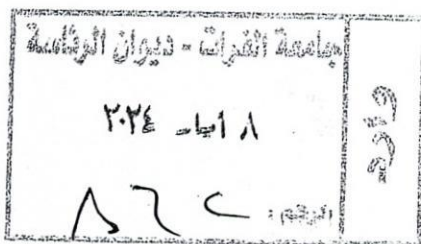 جامعة الفرات - ديوان الرئاسة
٨ أيار ٢٠٢٤
الرقم :
وارد